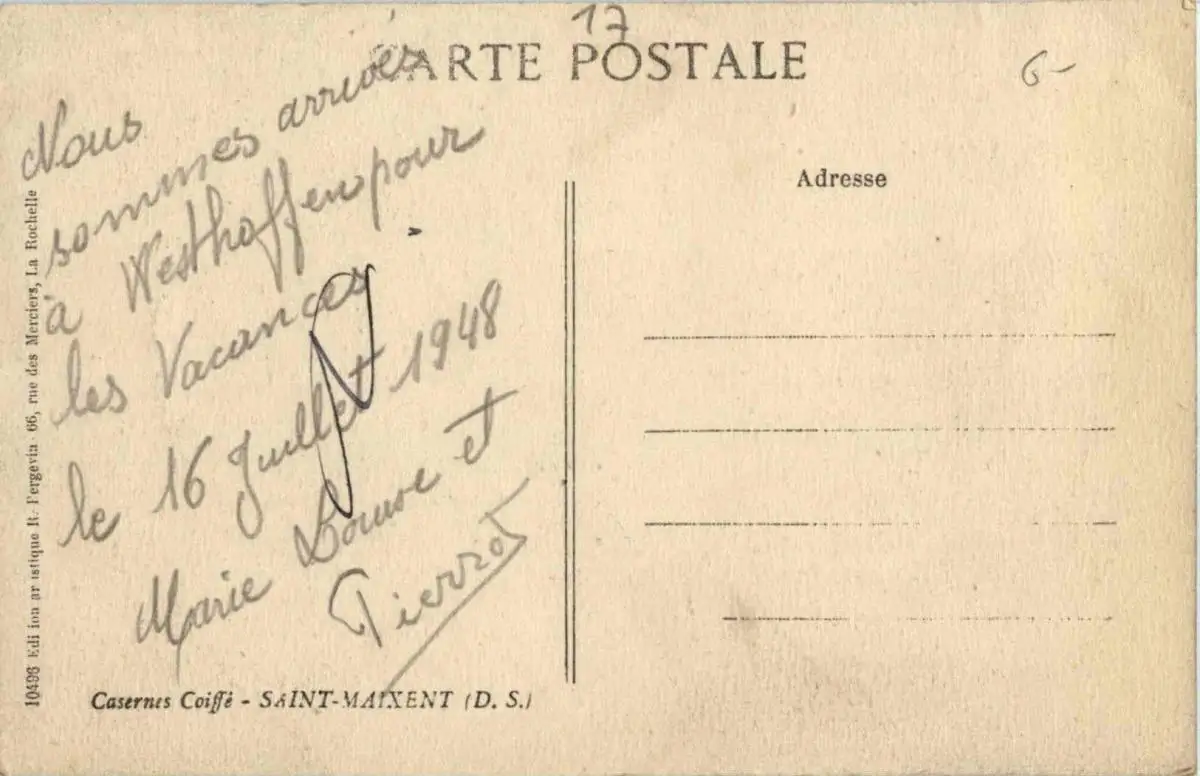 17
CARTE POSTALE
6-
Nous
sommes arrivés
à Westhoffen pour
les Vacances.
le 16 Juillet 1948
Marie Louise et
Pierrot
Adresse
10496 Edi ion ar istique R. Bergevin 66, rue des Merciers, La Rochelle
Casernes Coiffé - SAINT-MAIXENT (D. S.)